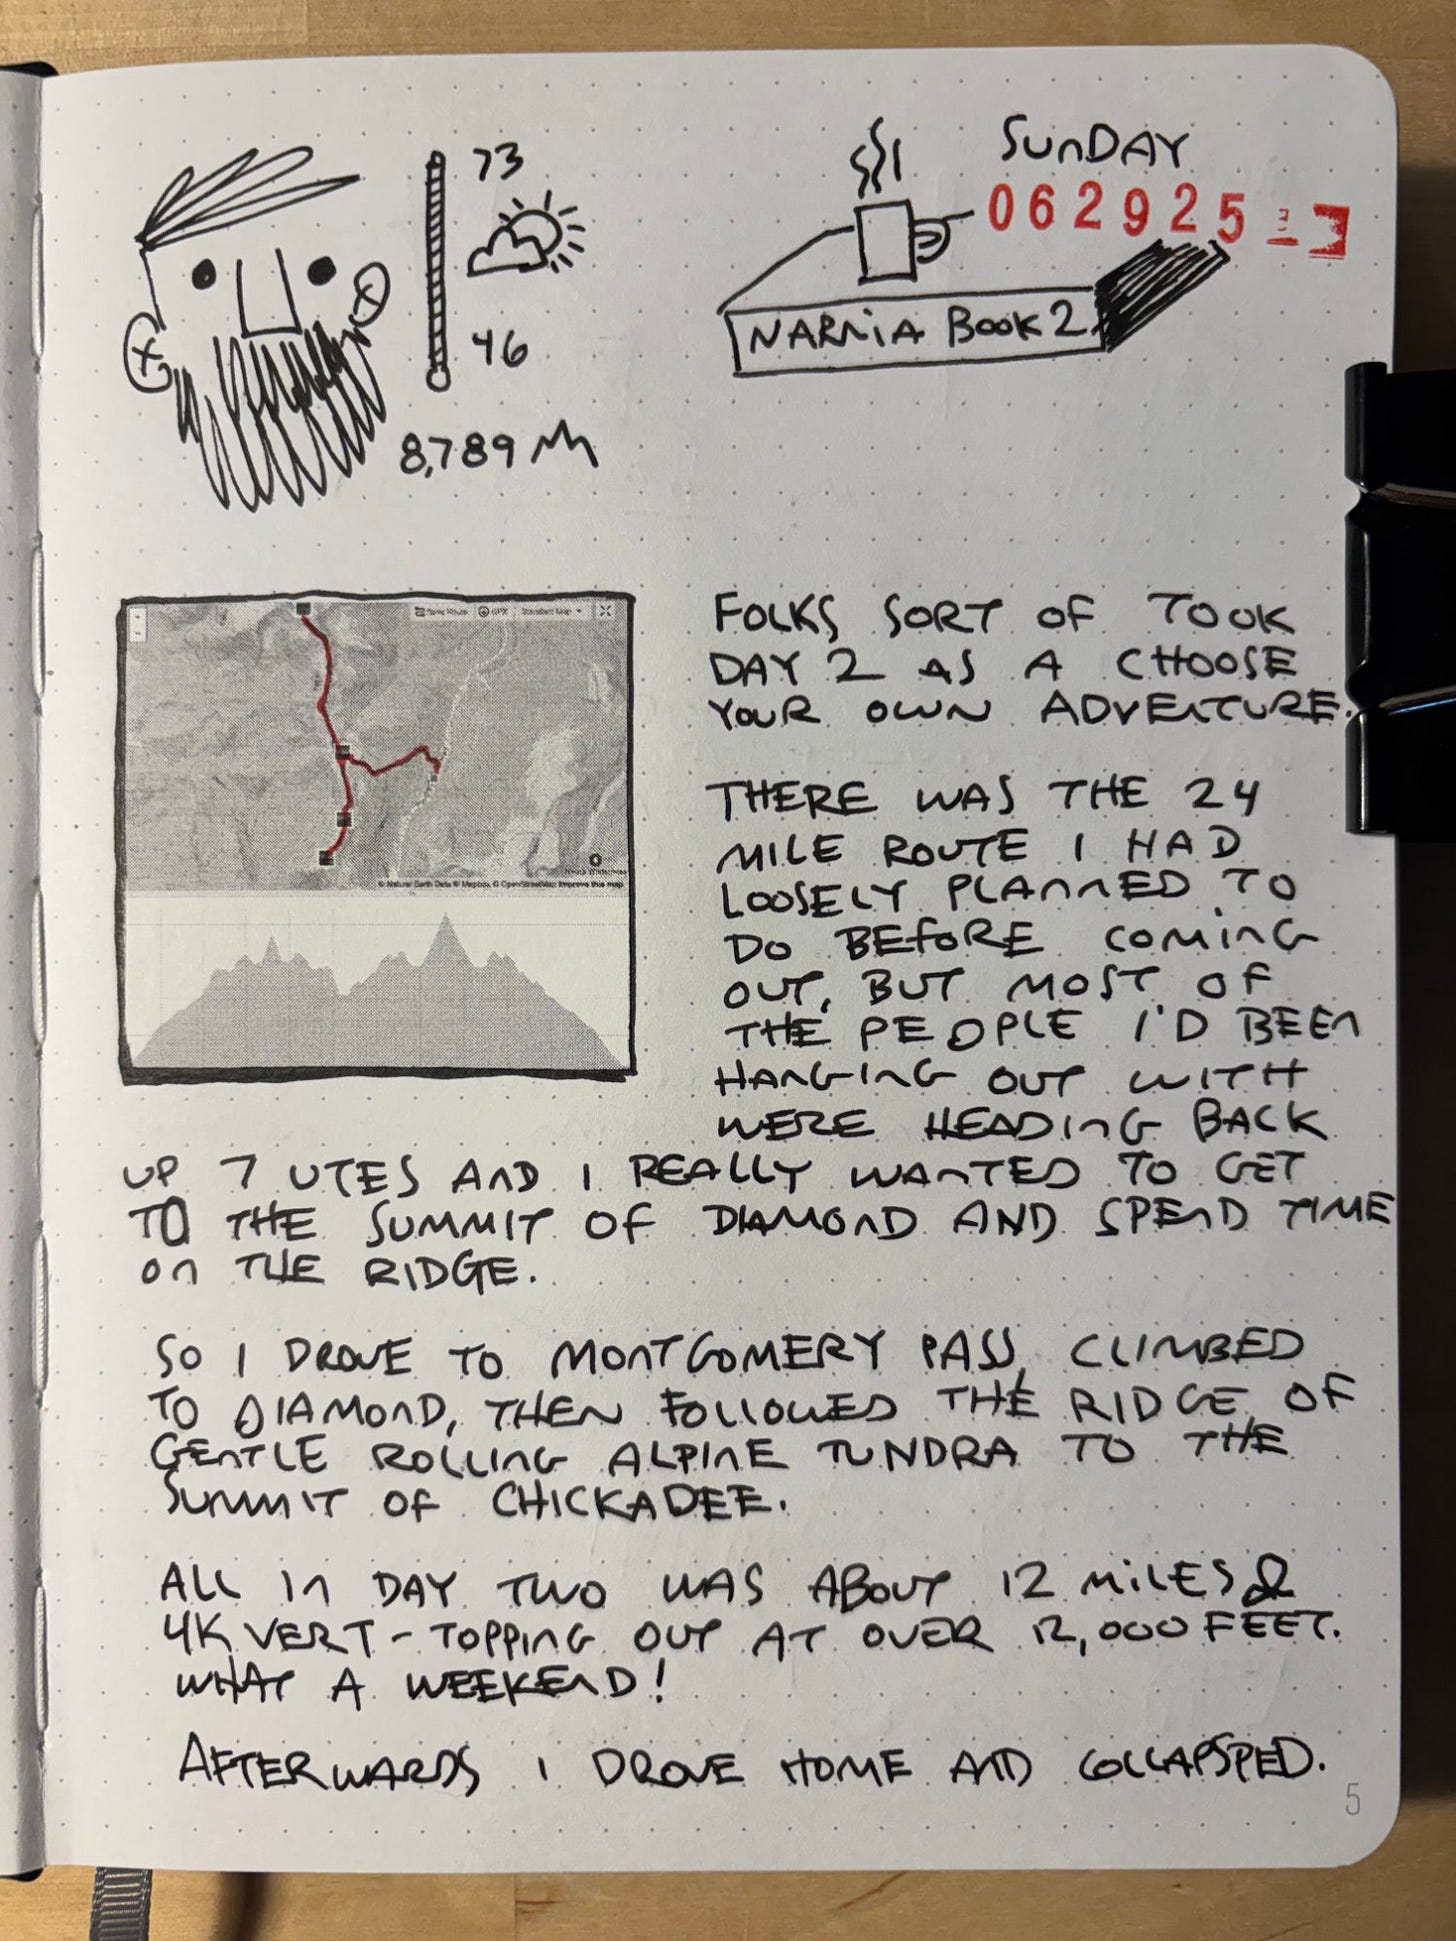 73
46
8,789
SUNDAY
062925
NARNIA BOOK 2
Standard Map
© Natural Earth Data © Mapbox © OpenStreetMap Improve this map
FOLKS SORT OF TOOK
DAY 2 AS A CHOOSE
YOUR OWN ADVENTURE.
THERE WAS THE 24
MILE ROUTE I HAD
LOOSELY PLANNED TO
DO BEFORE COMING
OUT, BUT MOST OF
THE PEOPLE I'D BEEN
HANGING OUT WITH
WERE HEADING BACK
UP 7 UTES AND I REALLY WANTED TO GET
TO THE SUMMIT OF DIAMOND AND SPEND TIME
ON THE RIDGE.
SO I DROVE TO MONTGOMERY PASS, CLIMBED
TO DIAMOND, THEN FOLLOWED THE RIDGE OF
GENTLE ROLLING ALPINE TUNDRA TO THE
SUMMIT OF CHICKADEE.
ALL IN DAY TWO WAS ABOUT 12 MILES &
4K VERT - TOPPING OUT AT OVER 12,000 FEET.
WHAT A WEEKEND!
AFTERWARDS I DROVE HOME AND COLLAPSPED.
5